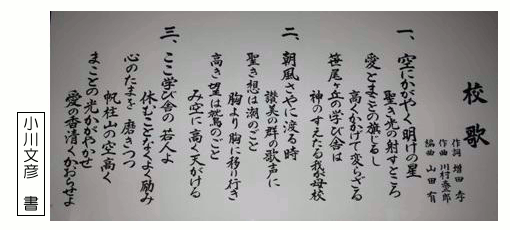 校歌
作詞 増田 孝
作曲 川村泰一郎
編曲 山田 有
一、空にかがやく明けの星
聖き光の射すところ
愛とまことの旗じるし
高くかかげて変らざる
笹尾ヶ丘の学び舎は
神のすえたる我が母校
二、朝風さやに渡る時
讃美の群の歌声に
聖き想は潮のごと
胸より胸に移り行き
高き望は鷲のごと
み空に高く天がける
三、ここ学び舎の若人よ
休むことなくよく励み
心のたまを磨きつつ
帆柱山の空高く
まことの光かがやかせ
愛の香清くかおらせよ
小川文彦 書